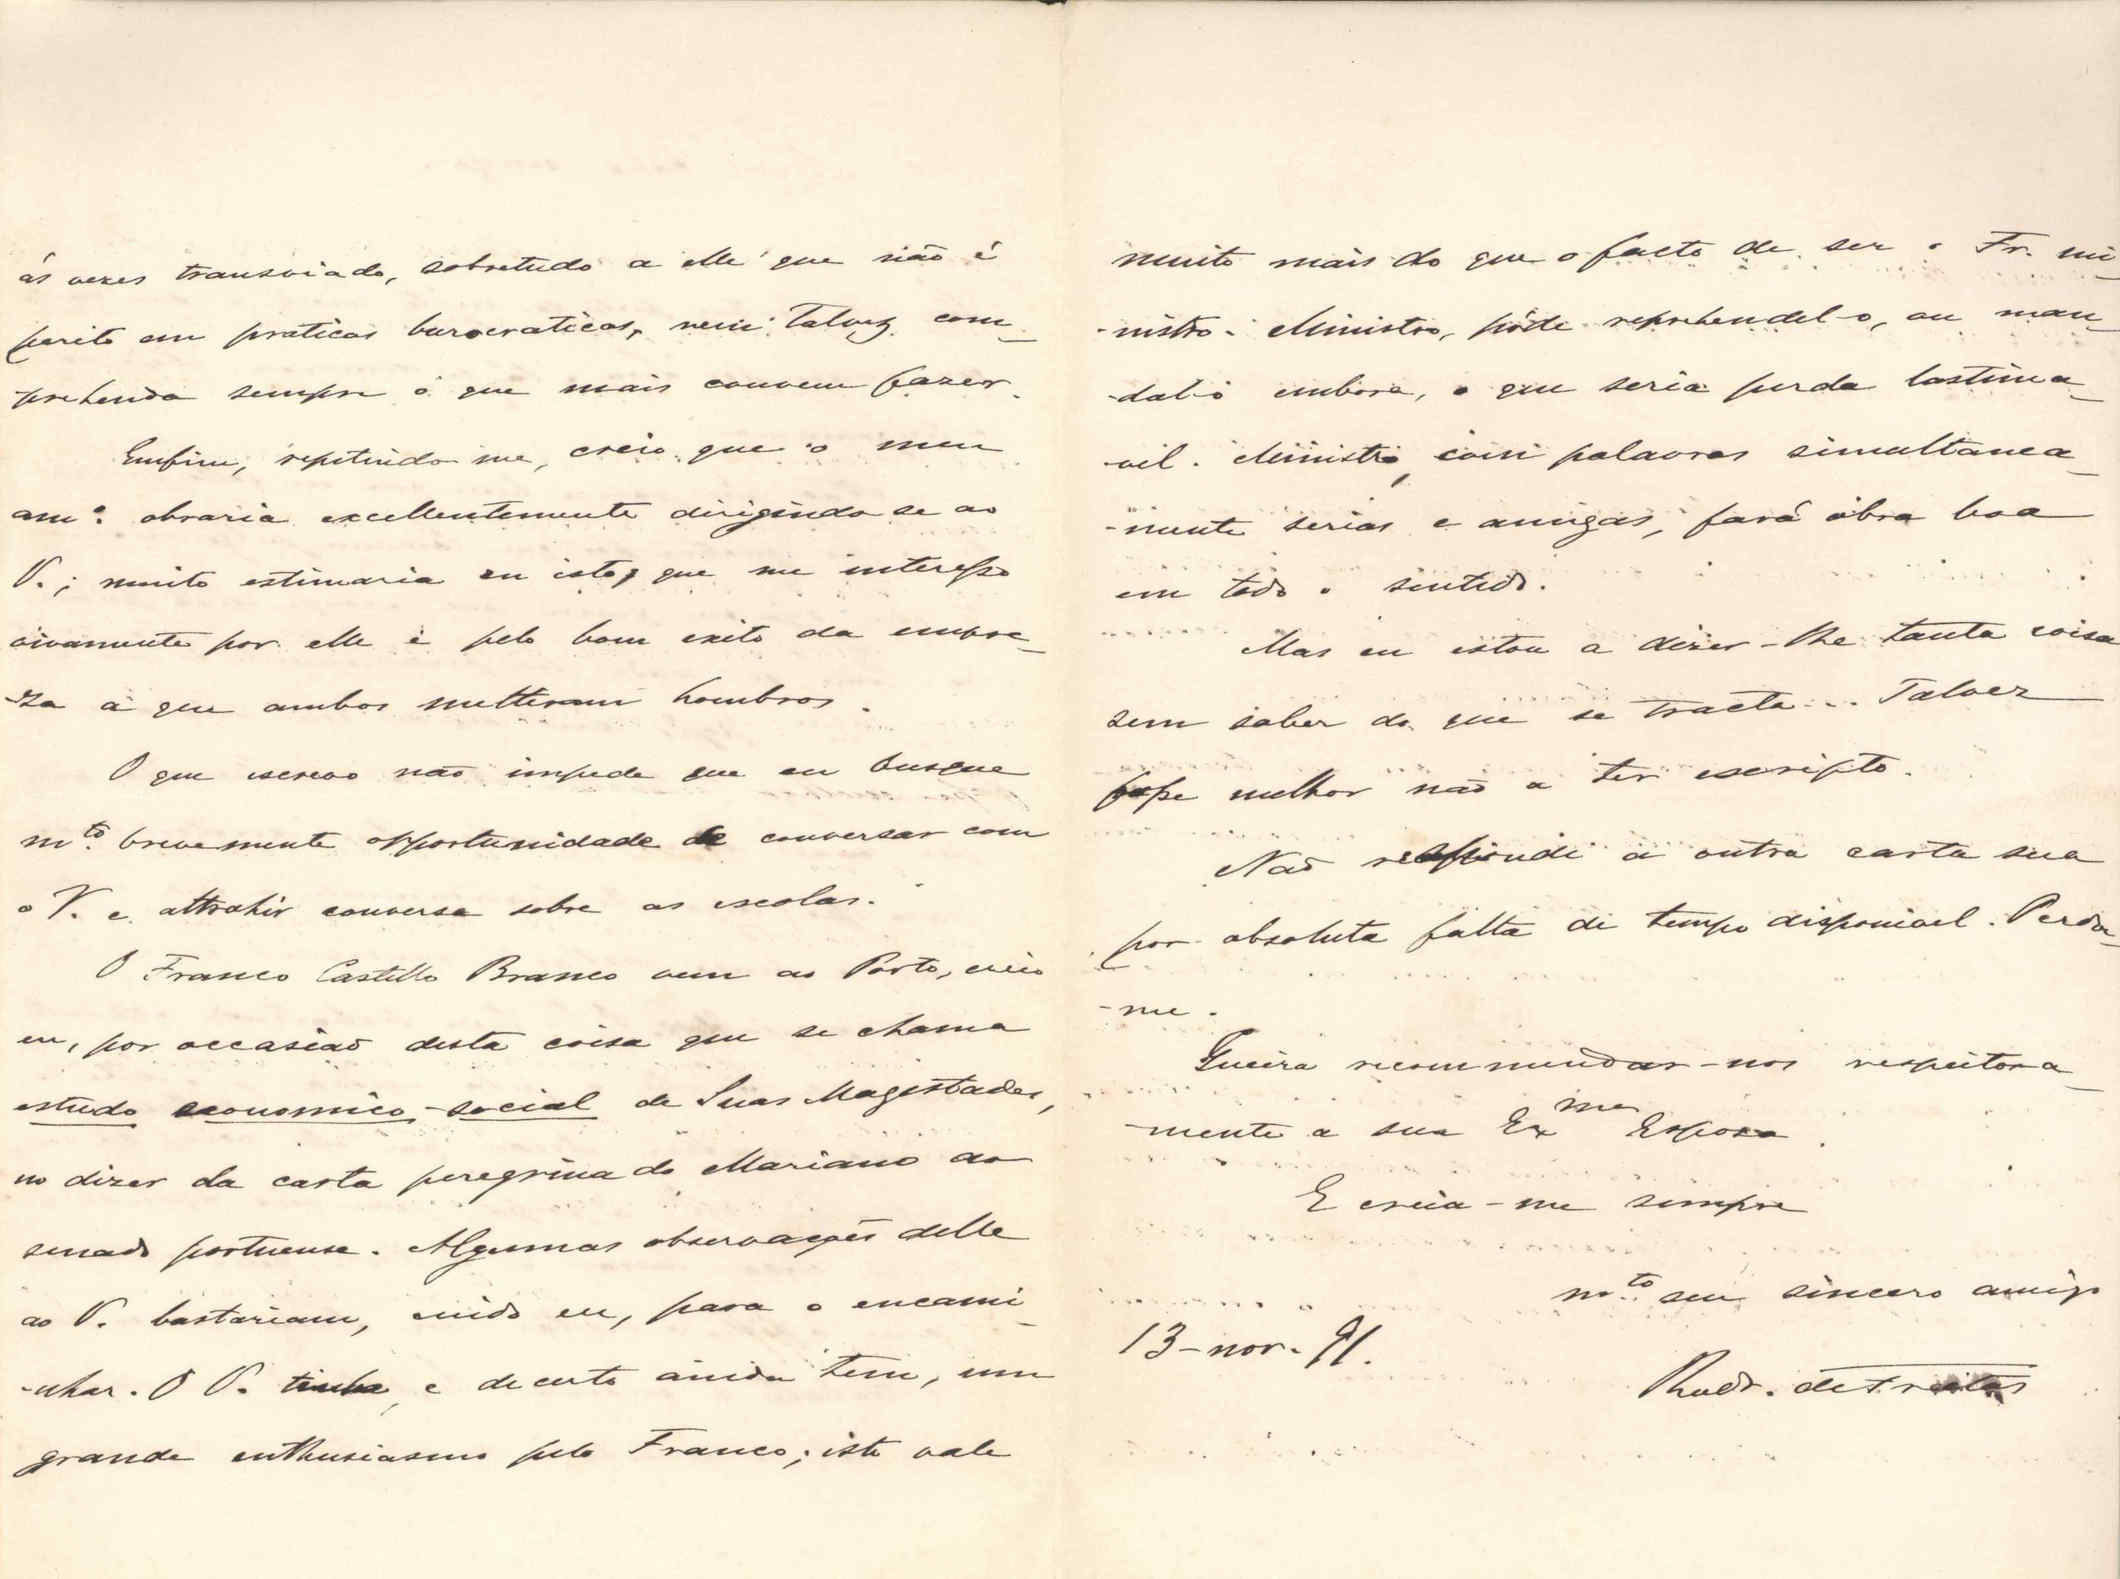 ás vezes transviado, sobretudo a elle que não é
perito em praticas burocraticas, nem talvez com-
-prehenda sempre o que mais convem fazer.
Emfim, repetindo-me, creio que o meu
am.º obraria excellentemente dirigindo-se ao
V.; muito estimaria eu isto, que me interesso
vivamente por elle e pelo bom exito da empre-
-za a que ambos metteram hombros.
O que escrevo não impede que eu busque
m.to brevemente opportunidade de conversar com
o V. e attrahir conversa sobre as escolas.
O Franco Castello Branco vem ao Porto, creio
eu, por occasião desta coisa que se chama
estudo economico-social de Suas Magestades,
no dizer da carta peregrina do Mariano ao
senado portuense. Algumas observações delle
ao V. bastariam, cuido eu, para o encami-
-nhar. O V. tinha, e decerto ainda tem, um
grande enthusiasmo pelo Franco; isto vale
muito mais do que o facto de ser o Fr. mi-
-nistro. Ministro, póde reprehendel-o, ou man-
-dal-o embora, o que seria perda lastima-
-vel. Ministro, com palavras simultanea-
-mente serias e amigas, fará obra boa
em todo o sentido.
Mas eu estou a dizer-lhe tanta coisa
sem saber do que se tracta... Talvez
fosse melhor não a ter escripto.
Não respondi á outra carta sua
por absoluta falta de tempo disponivel. Perdoe-
-me.
Queira recommendar-nos respeitosa-
-mente a sua Exma Esposa.
E creia-me sempre
m.to seu sincero amigo
13-nov.-91.
Rodr. de Freitas